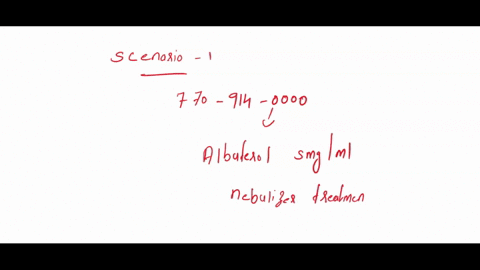 scenorio - 1
770 - 914 - 0000
Albuterol 5mg/ml
nebulizer treatmen